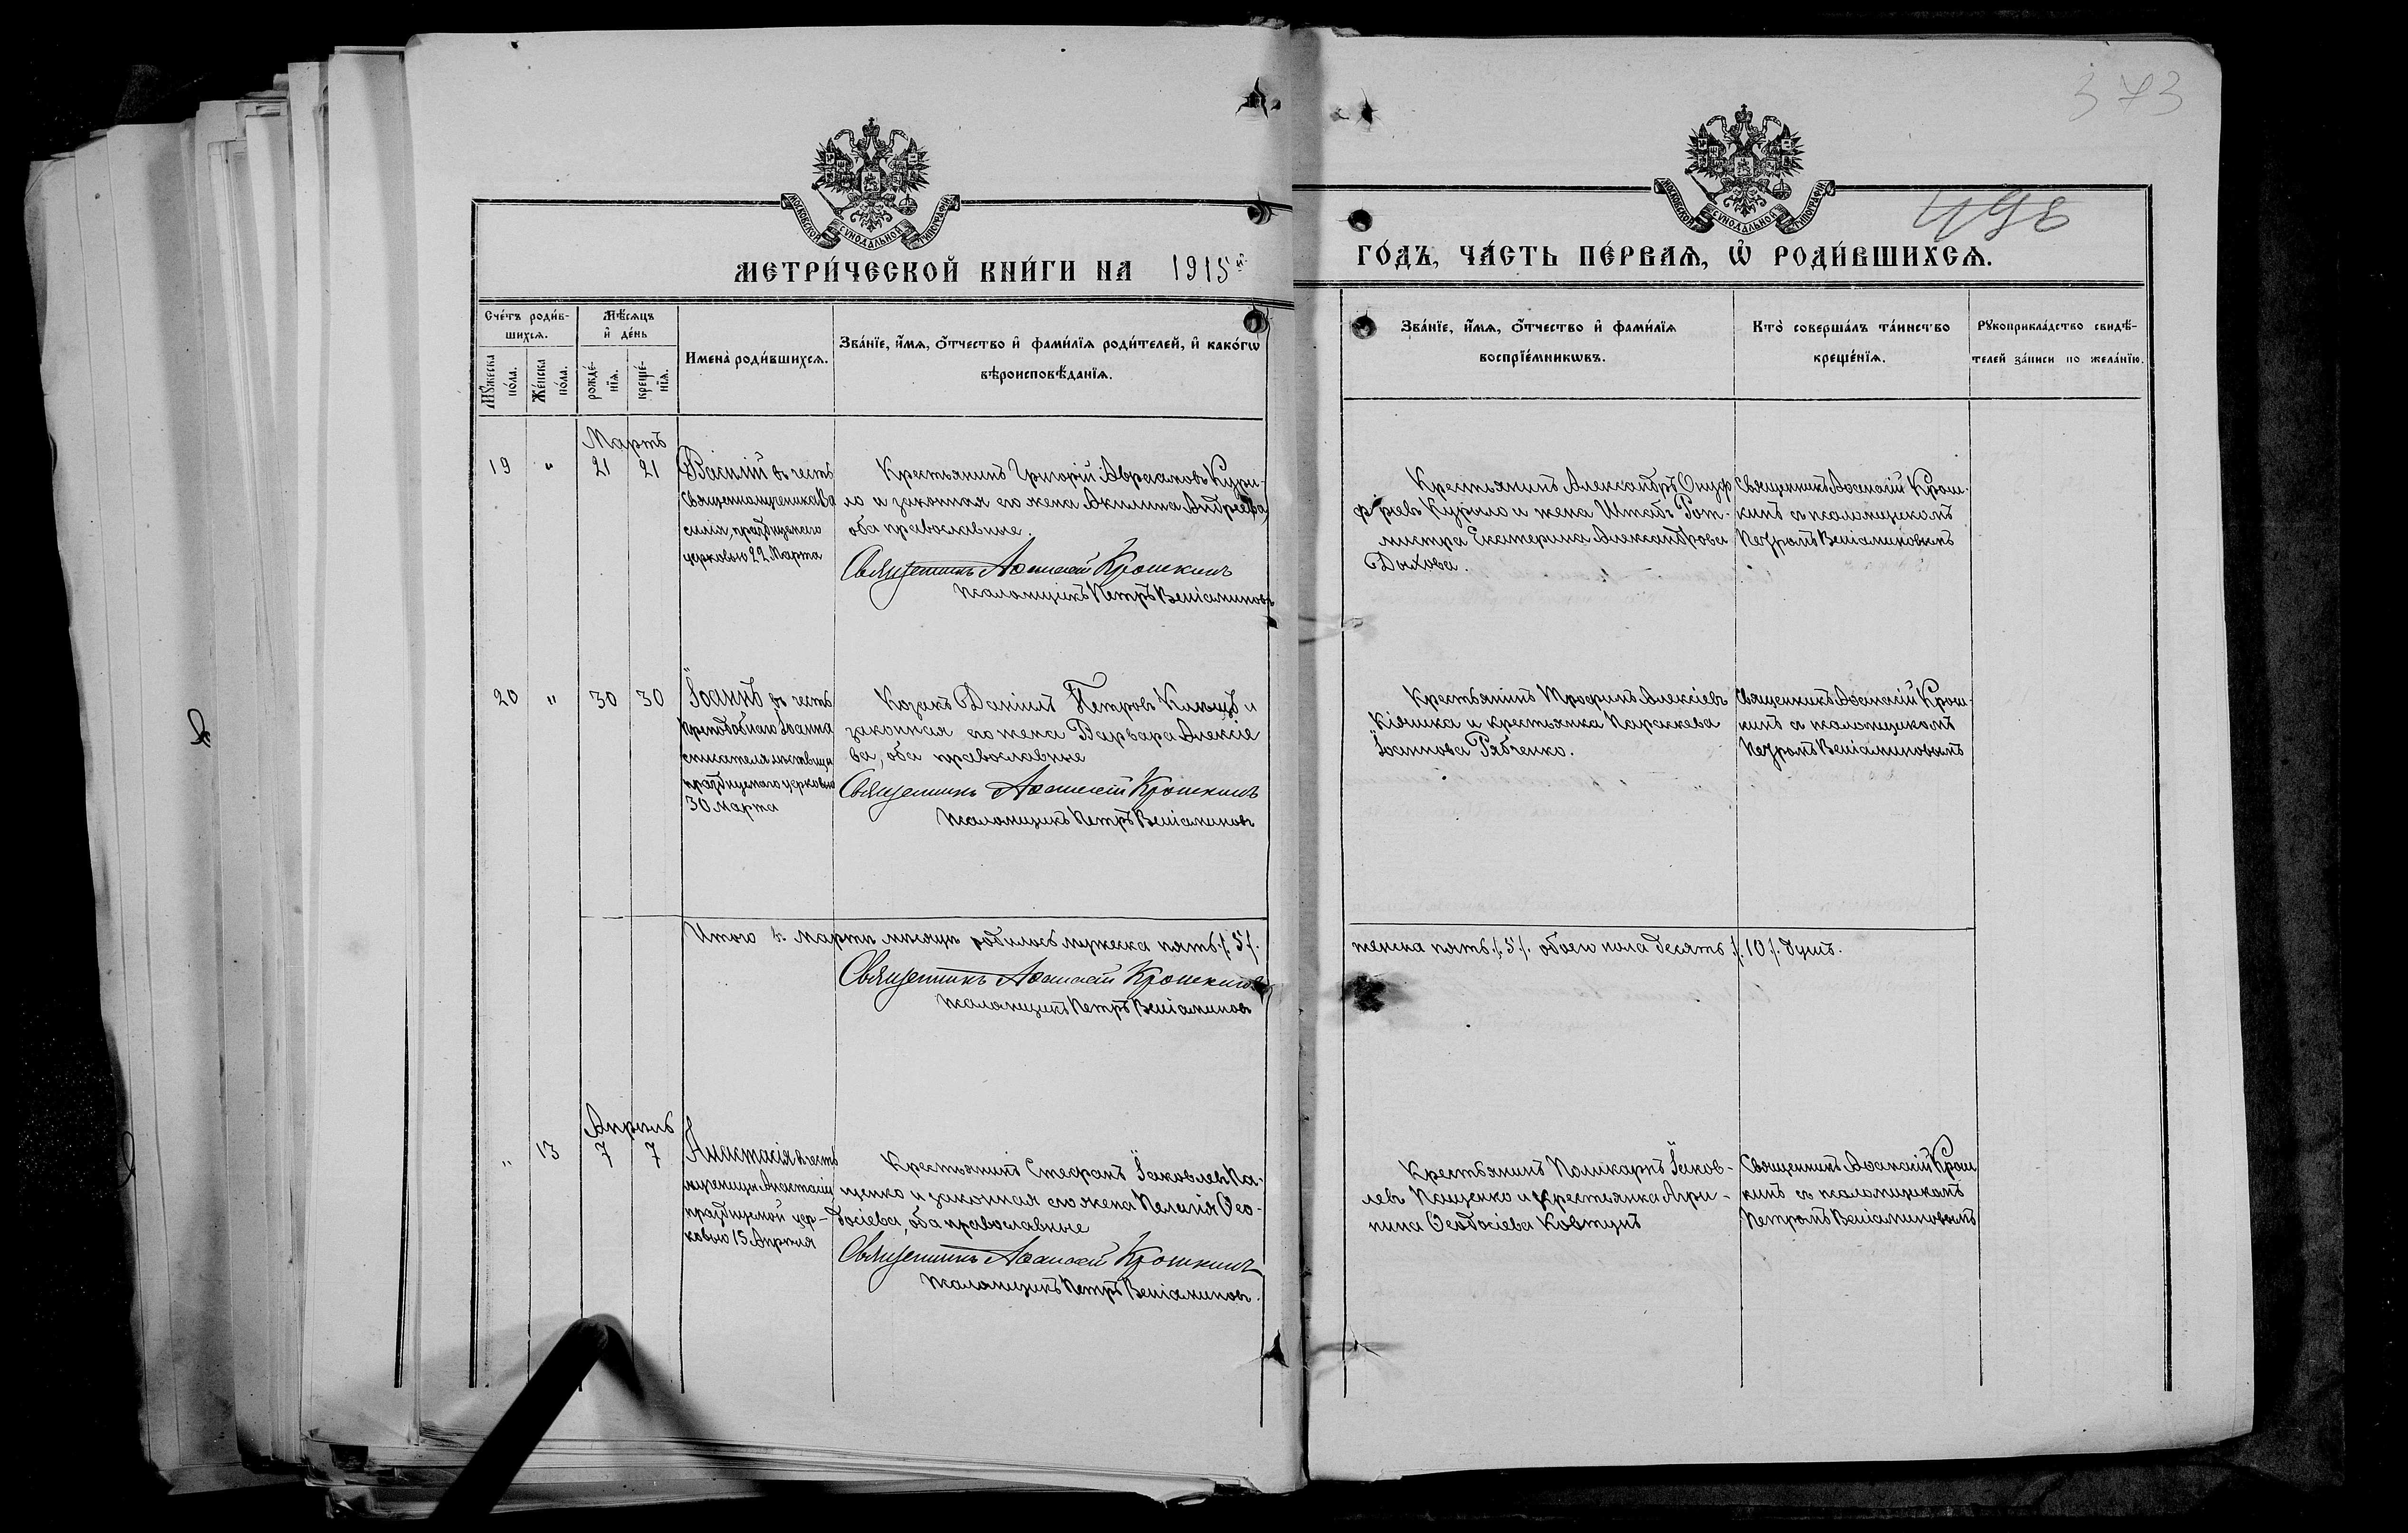 373
496
МОСКОВСКОЙ СУНОДАЛЬНОЙ ТИПОГРАФІИ
МОСКОВСКОЙ СУНОДАЛЬНОЙ ТИПОГРАФІИ
МЕТРИ́ЧЕСКОЙ КНИ́ГИ НА 1915й
ГО́ДЪ, ЧА́СТЬ ПЕ́РВАѦ, Ѡ҆ РОДИ́ВШИХСѦ.
Сче́тъ роди́в-
шихсѧ.
Мꙋ́жеска по́ла.
Же́нска по́ла.
Мѣ́сѧцъ
и҆ де́нь
рожде́-
нїѧ.
креще́-
нїѧ.
Имена̀ роди́вшихсѧ.
Зва́нїе, и҆́мѧ, ѻ҆́тчество и҆ фами́лїѧ роди́телей, и҆ како́гѡ
вѣроисповѣ́данїѧ.
Зва́нїе, и҆́мѧ, ѻ҆́тчество и҆ фами́лїѧ
воспрїе́мникѡвъ.
Кто̀ соверша́лъ та́инство
креще́нїѧ.
Рꙋкоприкла́дство свидѣ́-
телей за́писи по жела́нїю.
Мартъ
19 " 21 21
Василій въ честь
Священномученика Ва
силія, празднуемаго
церковью 22 Марта
Крестьянинъ Григорій Авраамовъ Кури-
ло и законная его жена Акилина Андреева,
оба православные.
Священникъ Аѳанасій Крошкинъ
Псаломщикъ Петръ Веніаминовъ
Крестьянинъ Александръ Онуф
ріевъ Курило и жена Штабъ Рот-
мистра Екатерина Александрова
Дыхова.
Священникъ Аѳанасій Крош-
кинъ съ псаломщикомъ
Петромъ Веніаминовымъ
20 " 30 30
Іоаннъ въ честь
Преподобнаго Іоанна
списателя лѣствицы
празднуемаго церковью
30 Марта
Козакъ Даніилъ Петровъ Клющъ и
законная его жена Варвара Алексіе
ва, оба православные
Священникъ Аѳанасій Крошкинъ
Псаломщикъ Петръ Веніаминовъ
Крестьянинъ Трофимъ Алексіевъ
Кіяшка и крестьянка Параскева
Іоаннова Рябченко.
Священникъ Аѳанасій Крош-
кинъ съ псаломщикомъ
Петромъ Веніаминовымъ
Итого въ мартѣ мѣсяцѣ родилось мужеска пять /.5/.
женска пять /.5/. обоего пола десять /.10/. душъ.
Священникъ Аѳанасій Крошкинъ
Псаломщикъ Петръ Веніаминовъ
Апрѣль
" 13 7 7
Анастасія въ честь
мученицы Анастасіи
празднуемой цер-
ковью 15 Апрѣля
Крестьянинъ Стефанъ Іаковлевъ Па-
щенко и законная его жена Пелагія Ѳео-
досіева, оба православные
Священникъ Аѳанасій Крошкинъ
Псаломщикъ Петръ Веніаминовъ.
Крестьянинъ Поликарпъ Іаков-
левъ Пащенко и крестьянка Агри-
пина Ѳеодосіева Ковтунъ
Священникъ Аѳанасій Крош
кинъ съ псаломщикомъ
Петромъ Веніаминовымъ